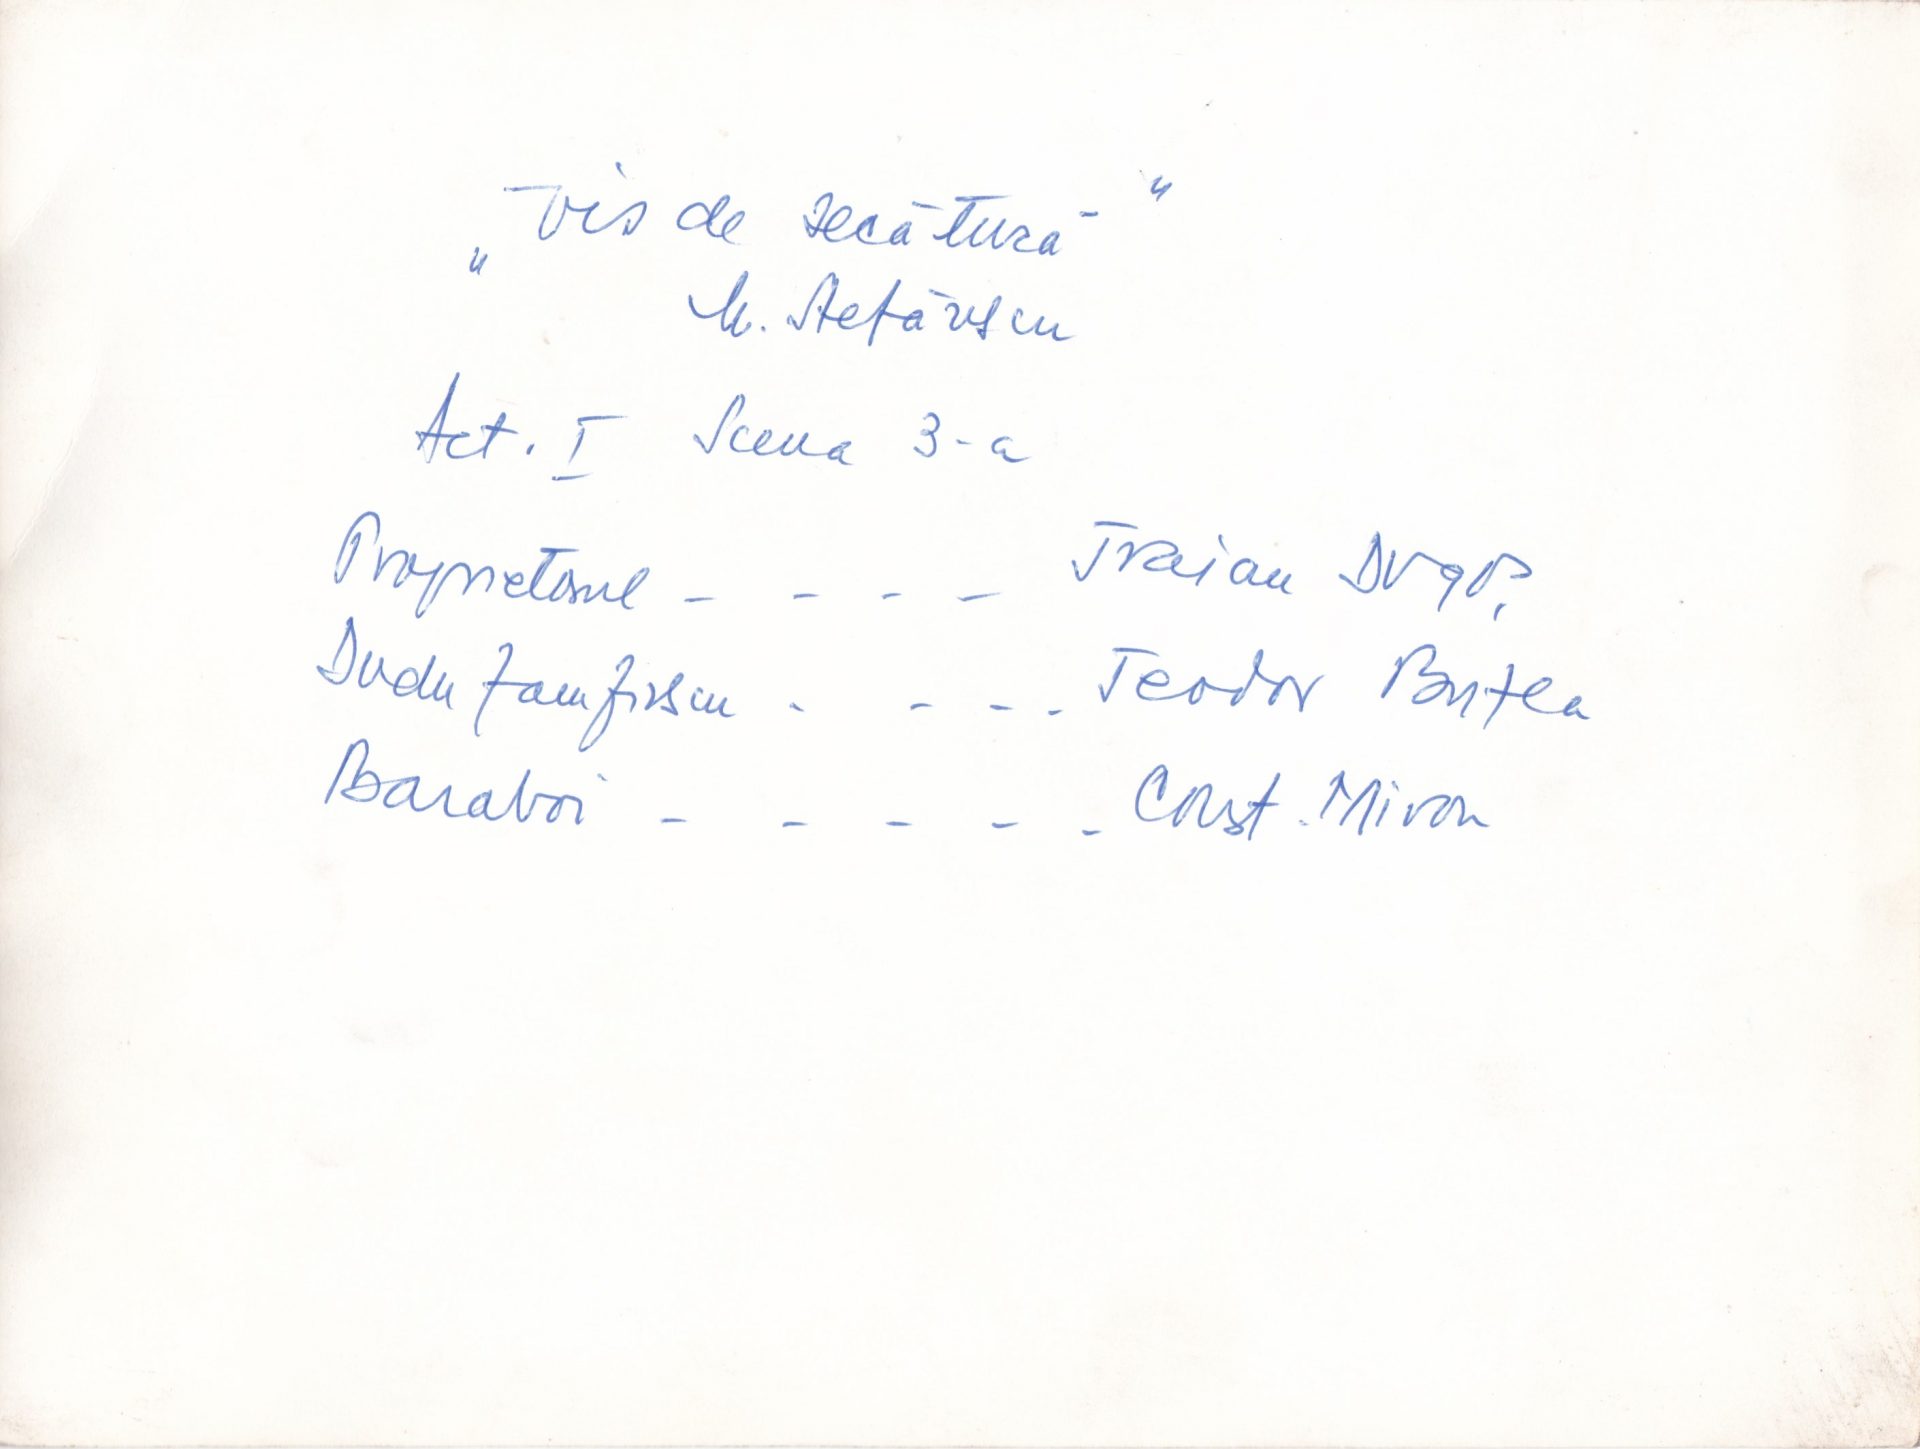 „Vis de secătură"
M. Ștefănescu
Act. I Scena 3-a
Proprietarul - - - - Traian
Dudu Zamfirescu - - - - Teodor
Baraboi - - - - - Const. Miron